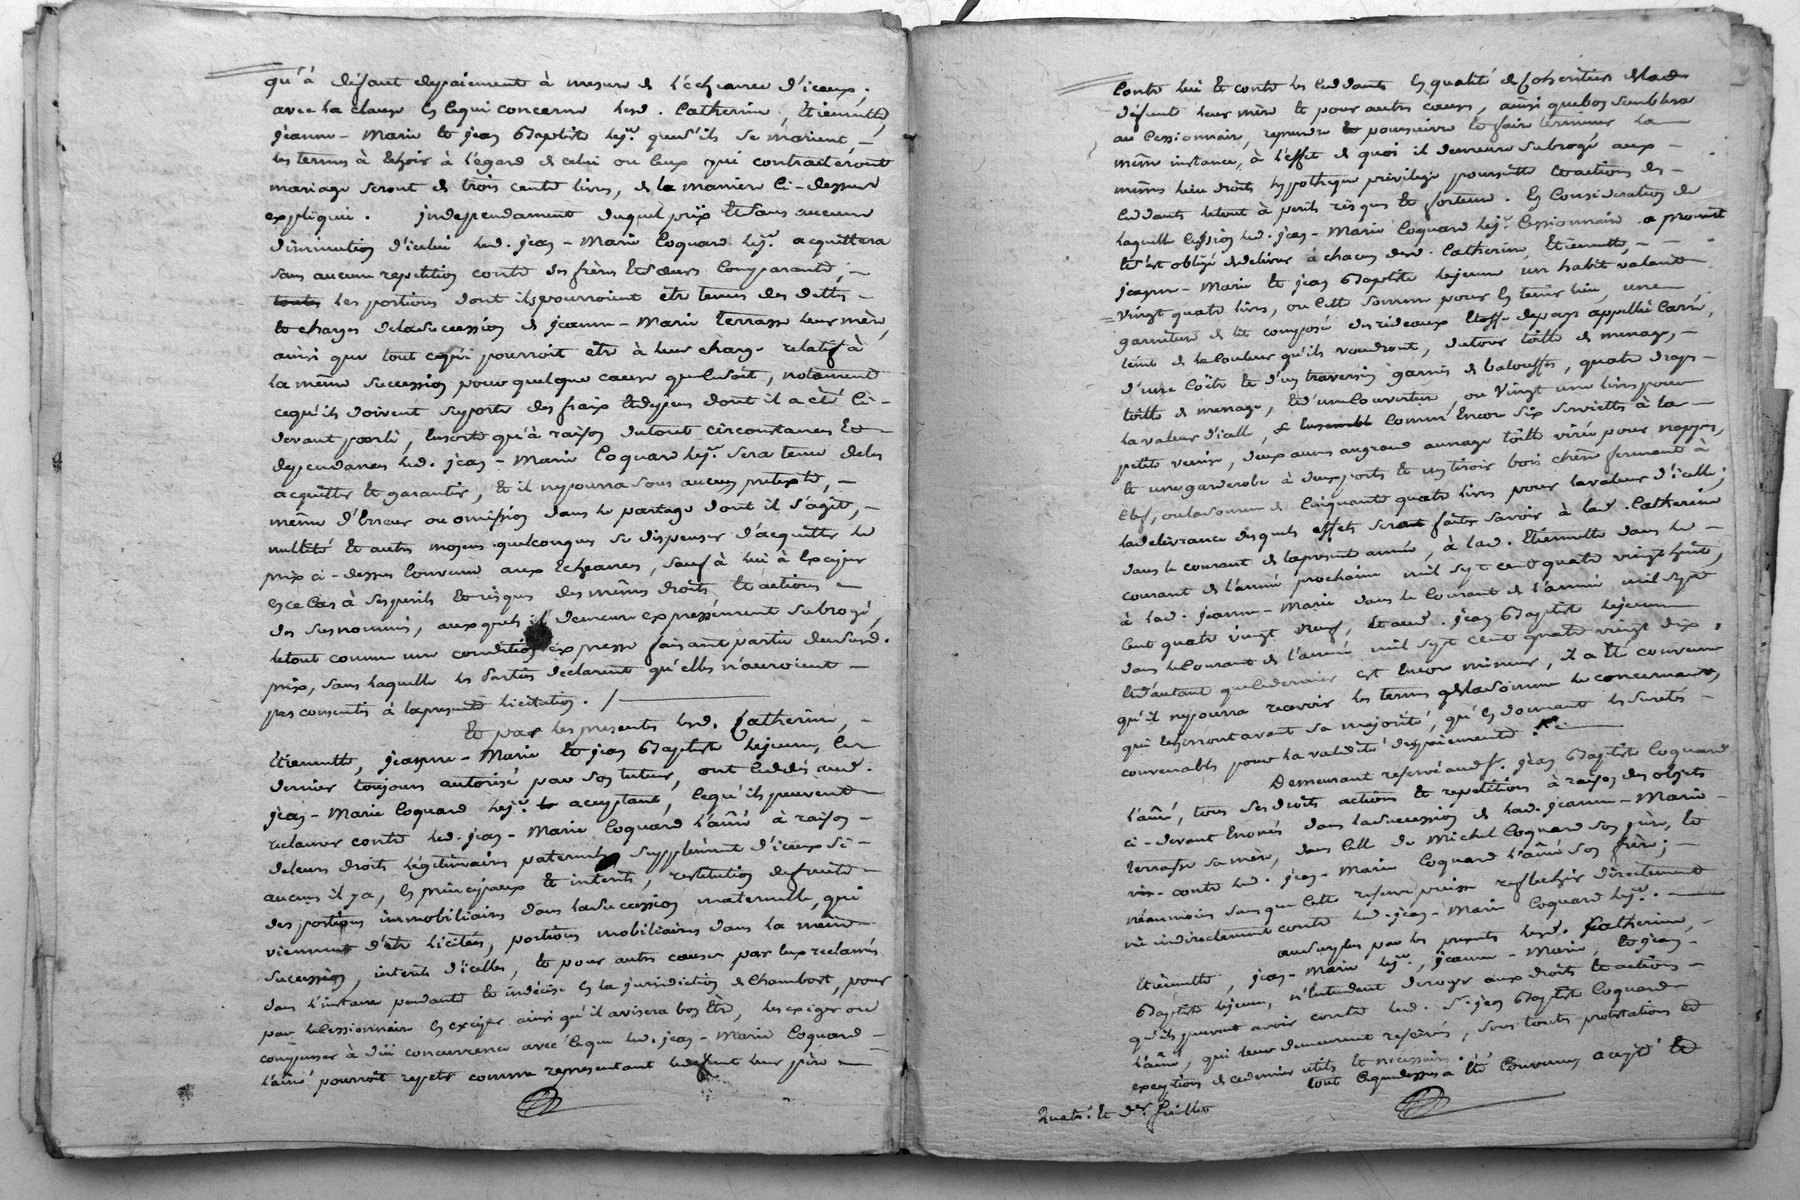 qu'à défaut depaiement à mesure de l'échéance d'iceux;
avec la clause en cequi concerne lesd. Catherine, Etiennette,
jeanne-Marie et jean Baptiste lej.ne quens'ils se marient,
les termes à échoir à l'égard de celui ou ceux qui contracteront
mariage seront de trois cents livres, de la manière ci-dessus
expliquée. jndependament duquel prix et sans aucune
diminution d'icelui led. jean-Marie Coquard lej.ne acquittera
sans aucune repetition contre ses frères et sœurs comparants;
les portions dont ils pourroient etre tenus des dettes
et charges delasuccession de jeanne-Marie Terrasse leur mère,
ainsi que tout cequi pourroit etre à leur charge relatif à
la même succession pour quelque cause quecesoit, notament
cequ'ils doivent supporter des fraix et depens dont il a été ci-
devant parlé, ensorte qu'à raison dutout circonstances et
dependances led. jean-Marie Coquard lej.ne sera tenu deles
acquitter et garantir, et il nepourra sous aucun pretexte,
même d'erreur ou omission dans le partage dont il s'agit,
nullité et autres moyens quelconques se dispenser d'acquitter le
prix ci-dessus convenu aux echeances, sauf à lui à exciper
en ce cas à ses perils et risques des mêmes droits et actions
des susnommés, auxquels il demeure expressément subrogé,
letout comme une condition expresse faisant partie dudit
prix, sans laquelle les parties declarent qu'elles n'auroient
pas consentis à lapresente licitation. /
Et par les presentes lesd. Catherine,
Etiennette, jeanne-Marie et jean Baptiste lejeune, ce
dernier toujours autorisé par son tuteur, ont cédés aud.
jean-Marie Coquard lej.ne acceptant, cequ'ils peuvent
reclamer contre led. jean-Marie Coquard l'aîné à raison
deleurs droits légitimaires paternels, supplément d'iceux si
aucuns il ya, en principaux et interêts, restitution defruits
des portions immobiliaires dans lasuccession maternelle, qui
viennent d'etre licitées, portions mobiliaires dans la même
succession, interêts d'icelles, et pour autres causes par eux reclamés
dans l'instance pendante et indécise en la jurisdiction de Chambost, pour
par lecessionnaire en exciper ainsi qu'il avisera bon être, les exiger ou
compenser à düe concurrence avec ceque led. jean-Marie Coquard
l'aîné pourroit repeter comme representant ledefunt leur père
Contre lui et contre les cédants en qualité de cohéritiers delade
défunte leur mère et pour autres causes, ainsi quebon semblera
au Cessionnaire, reprendre poursuivre et faire terminer la
même instance, à l'effet de quoi il demeure subrogé aux
mêmes lieu droits hypotheque privilege poursuitte et actions des
cédants letout à perils risques et fortune. En consideration de
laquelle Cession led. jean-Marie Coquard lej.ne Cessionnaire a promit
et s'est obligé de delivrer à chacun desd. Catherine, Etiennette,
jeanne-Marie et jean Baptiste lejeune un habit valant
vingt quatre livres, ou cette somme pour en tenir lieu, une
garniture de lit composée des rideaux étoffe depays appellée Carré,
teint de lacouleur qu'ils voudront, dutour toille de menage,
d'une coëtre et d'un traversin garnis de balouffes, quatre draps
toille de menage, et d'une couverture, ou vingt une livres pour
la valeur d'icelle, comm'encore six serviettes à la
petite venise, deux aunes augrand aunage toille virée pour nappes,
et une garderobe à deux portes et un tiroir bois chêne fermant à
clef, ou lasomme de cinquante quatre livres pour lavaleur d'icelle;
ladelivrance desquels effets serat faite savoir à lad. Catherine
dans le courant de lapresente année, à lad. Etiennette dans le
courant de l'année prochaine mil sept cent quatre vingt huit,
à lad. jeanne-Marie dans le courant de l'année mil sept
cent quatre vingt neuf, et aud. jean Baptiste lejeune
dans lecourant de l'année mil sept cent quatre vingt dix,
et d'autant queledernier est encore mineur, il a été convenu
qu'il nepourra recevoir les termes delasomme le concernants,
qui echerront avant sa majorité, qu'en donnant les suretés
convenables pour la validité despaiements.
Demeurant reservé aud. Sr. jean Baptiste Coquard
l'aîné, tous ses droits actions et repetitions à raison des objets
ci-devant enoncés dans lasuccession de lad. jeanne-Marie
Terrasse sa mère, dans celle de Michel Coquard son père, et
contre led. jean-Marie Coquard l'aîné son frère;
néanmoins sans que cette reserve puisse reflechir directement
ni indirectement contre led. jean-Marie Coquard lej.ne.
ausurplus par les presentes lesd. Catherine,
Etiennette, jean-Marie lej.ne, jeanne-Marie, et jean
Baptiste lejeune, n'entendent deroger aux droits et actions
qu'ils peuvent avoir contre led. Sr. jean Baptiste Coquard
l'aîné, qui leur demeurent reservés, sous toutes protestations et
exceptions de cedernier utiles et necessaires.
tout cequedessus a été convenu accepté et
Quatr.e et der. feuillet